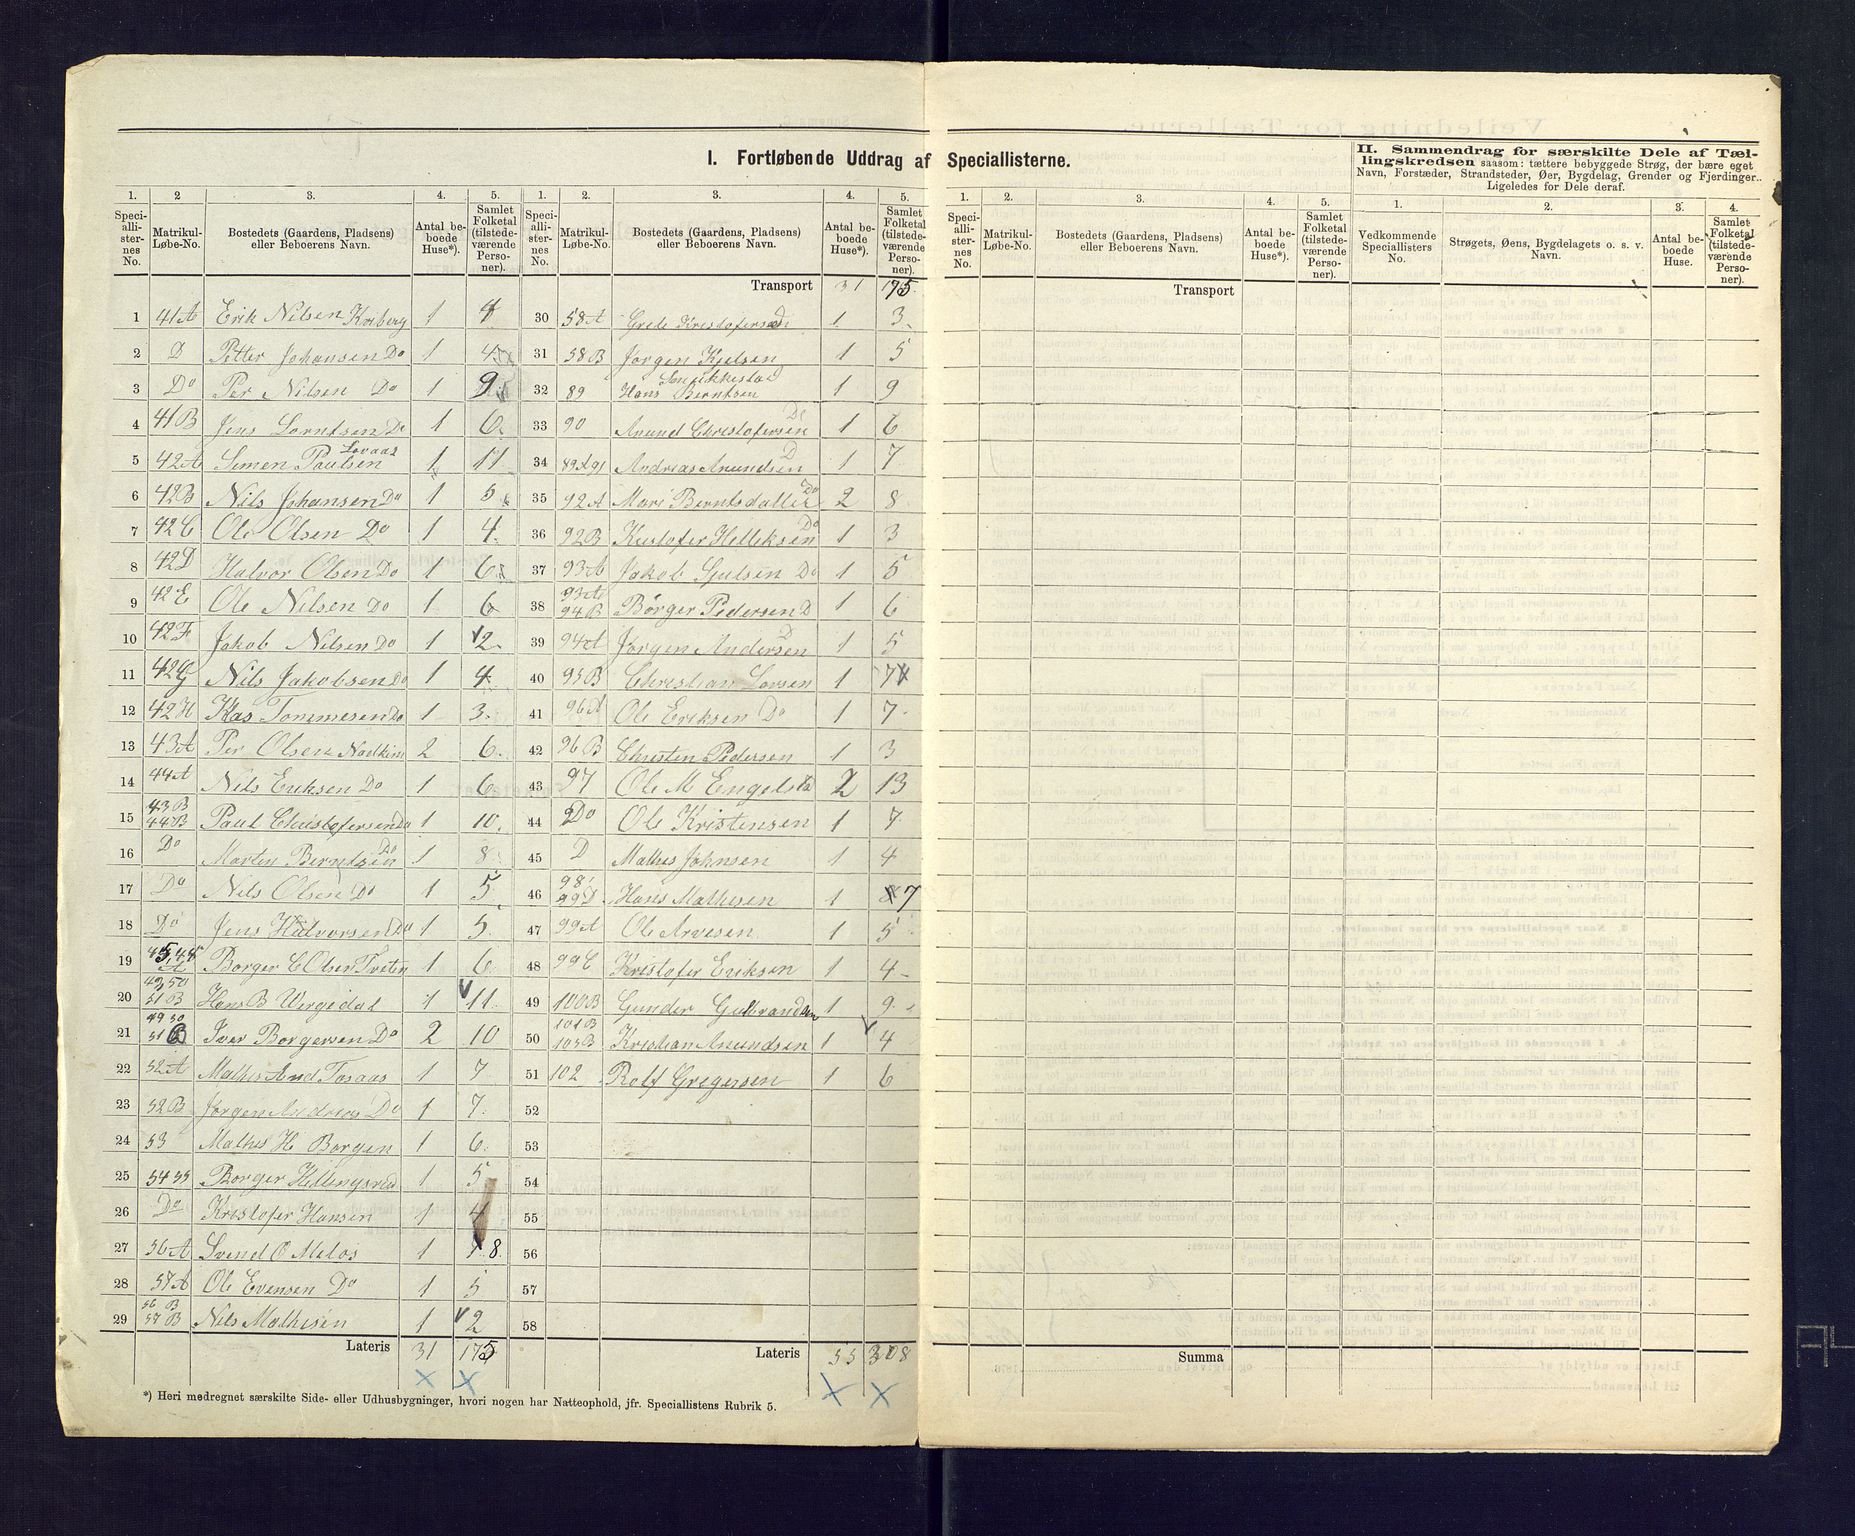 I. Fortløbende Uddrag af Speciallisterne.
1. 2 3. 4. 5. 1. 2. 3. 4. 5.
Speciallisternes No. Matrikul-Løbe-No. Bostedets (Gaardens, Pladsens) eller Beboerens Navn. Antal beboede Huse*). Samlet Folketal (tilstedeværende Personer).
Speciallisternes No. Matrikul-Løbe-No. Bostedets (Gaardens, Pladsens) eller Beboerens Navn. Antal beboede Huse*). Samlet Folketal (tilstedeværende Personer).
Transport 31 175
1 41A Erik Nilsen Korberg 1 4
2 D Petter Johansen Do 1 4
3 Do Per Nilsen Do 1 9
4 41B Jens Larntsen Do 1 6
5 42A Simen Paulsen Lovaas 1 11
6 42B Nils Johansen Do 1 5
7 42C Ole Olsen Do 1 4
8 42D Halvor Olsen Do 1 6
9 42E Ole Nilsen Do 1 6
10 42F Jakob Nilsen Do 1 2
11 42G Nils Jakobsen Do 1 4
12 42H Klas Tommesen Do 1 3
13 43A Per Olsen 2 6
14 44A Nils Eriksen Do 1 6
15 43B 44B Paul Christofersen Do 1 10
16 Do Morten Berntsen Do 1 8
17 Do Nils Olsen Do 1 5
18 Do Jens Halvorsen Do 1 5
19 A Borger C Olsen Tveten 1 6
20 49 50 51B Hans B Vergedal 1 11
21 49 50 51 Iver Borgersen Do 2 10
22 52A Mathis And Tosaas 1 7
23 52B Jørgen Andreas Do 1 7
24 53 Mathis H Borgen 1 6
25 54 55 Borger Hellingsrud 1 5
26 Do Kristofer Hansen 1 4
27 56A Svend O Melos 1 8
28 57A Ole Evensen Do 1 5
29 56 B 57 B Nils Mathisen 1 2
Lateris 31 175
30 58A Grete Kristofersen D 1 3
31 58B Jørgen Kjelsen 1 5
32 89 Hans Berntsen 1 9
33 90 Anund Christofersen Do 1 6
34 89A 91 Andreas Anundsen D 1 7
35 92A Mari Berntsdatter Do 2 8
36 92B Kristofer Helleksen Do 1 3
37 93A Jakob Gulsen Do 1 5
38 93A 94B Børger Pedersen D 1 6
39 94A Jørgen Andersen D 1 5
40 95B Christian Larsen 1 7
41 96A Ole Eriksen Do 1 7
42 96B Christen Pedersen 1 3
43 97 Ole M Engelstad 2 13
44 Do Ole Kristensen 1 7
45 D Mathis Johnsen 1 4
46 98 99D Hans Mathisen 1 7
47 99A Ole Arvesen 1 5
48 99C Kristofer Eriksen 1 4
49 100B Gunder Gulbrandsen 1 9
50 101B 103B Kristian Anundsen 1 4
51 102 Rolf Gregersen 1 6
52
53
54
55
56
57
58
Lateris 55 308
*) Heri medregnet særskilte Side- eller Udhusbygninger, hvori nogen har Natteophold, jfr. Speciallistens Rubrik 5.
1. 2. 3. 4. 5.
Speciallisternes No. Matrikul-Løbe-No. Bostedets (Gaardens, Pladsens) eller Beboerens Navn. Antal beboede Huse*). Samlet Folketal (tilstedeværende Personer).
Transport
Summa
II. Sammendrag for særskilte Dele af Tællingskredsen saasom: tættere bebyggede Strøg, der bære eget
Navn, Forstæder, Strandsteder, Øer, Bygdelag, Grender og Fjerdinger..
Ligeledes for Dele deraf.
1. 2. 3. 4.
Vedkommende Speciallisters No. Strøgets, Øens, Bygdelagets o. s. v. Navn. Antal beboede Huse. Samlet Folketal (tilstedeværende Personer).